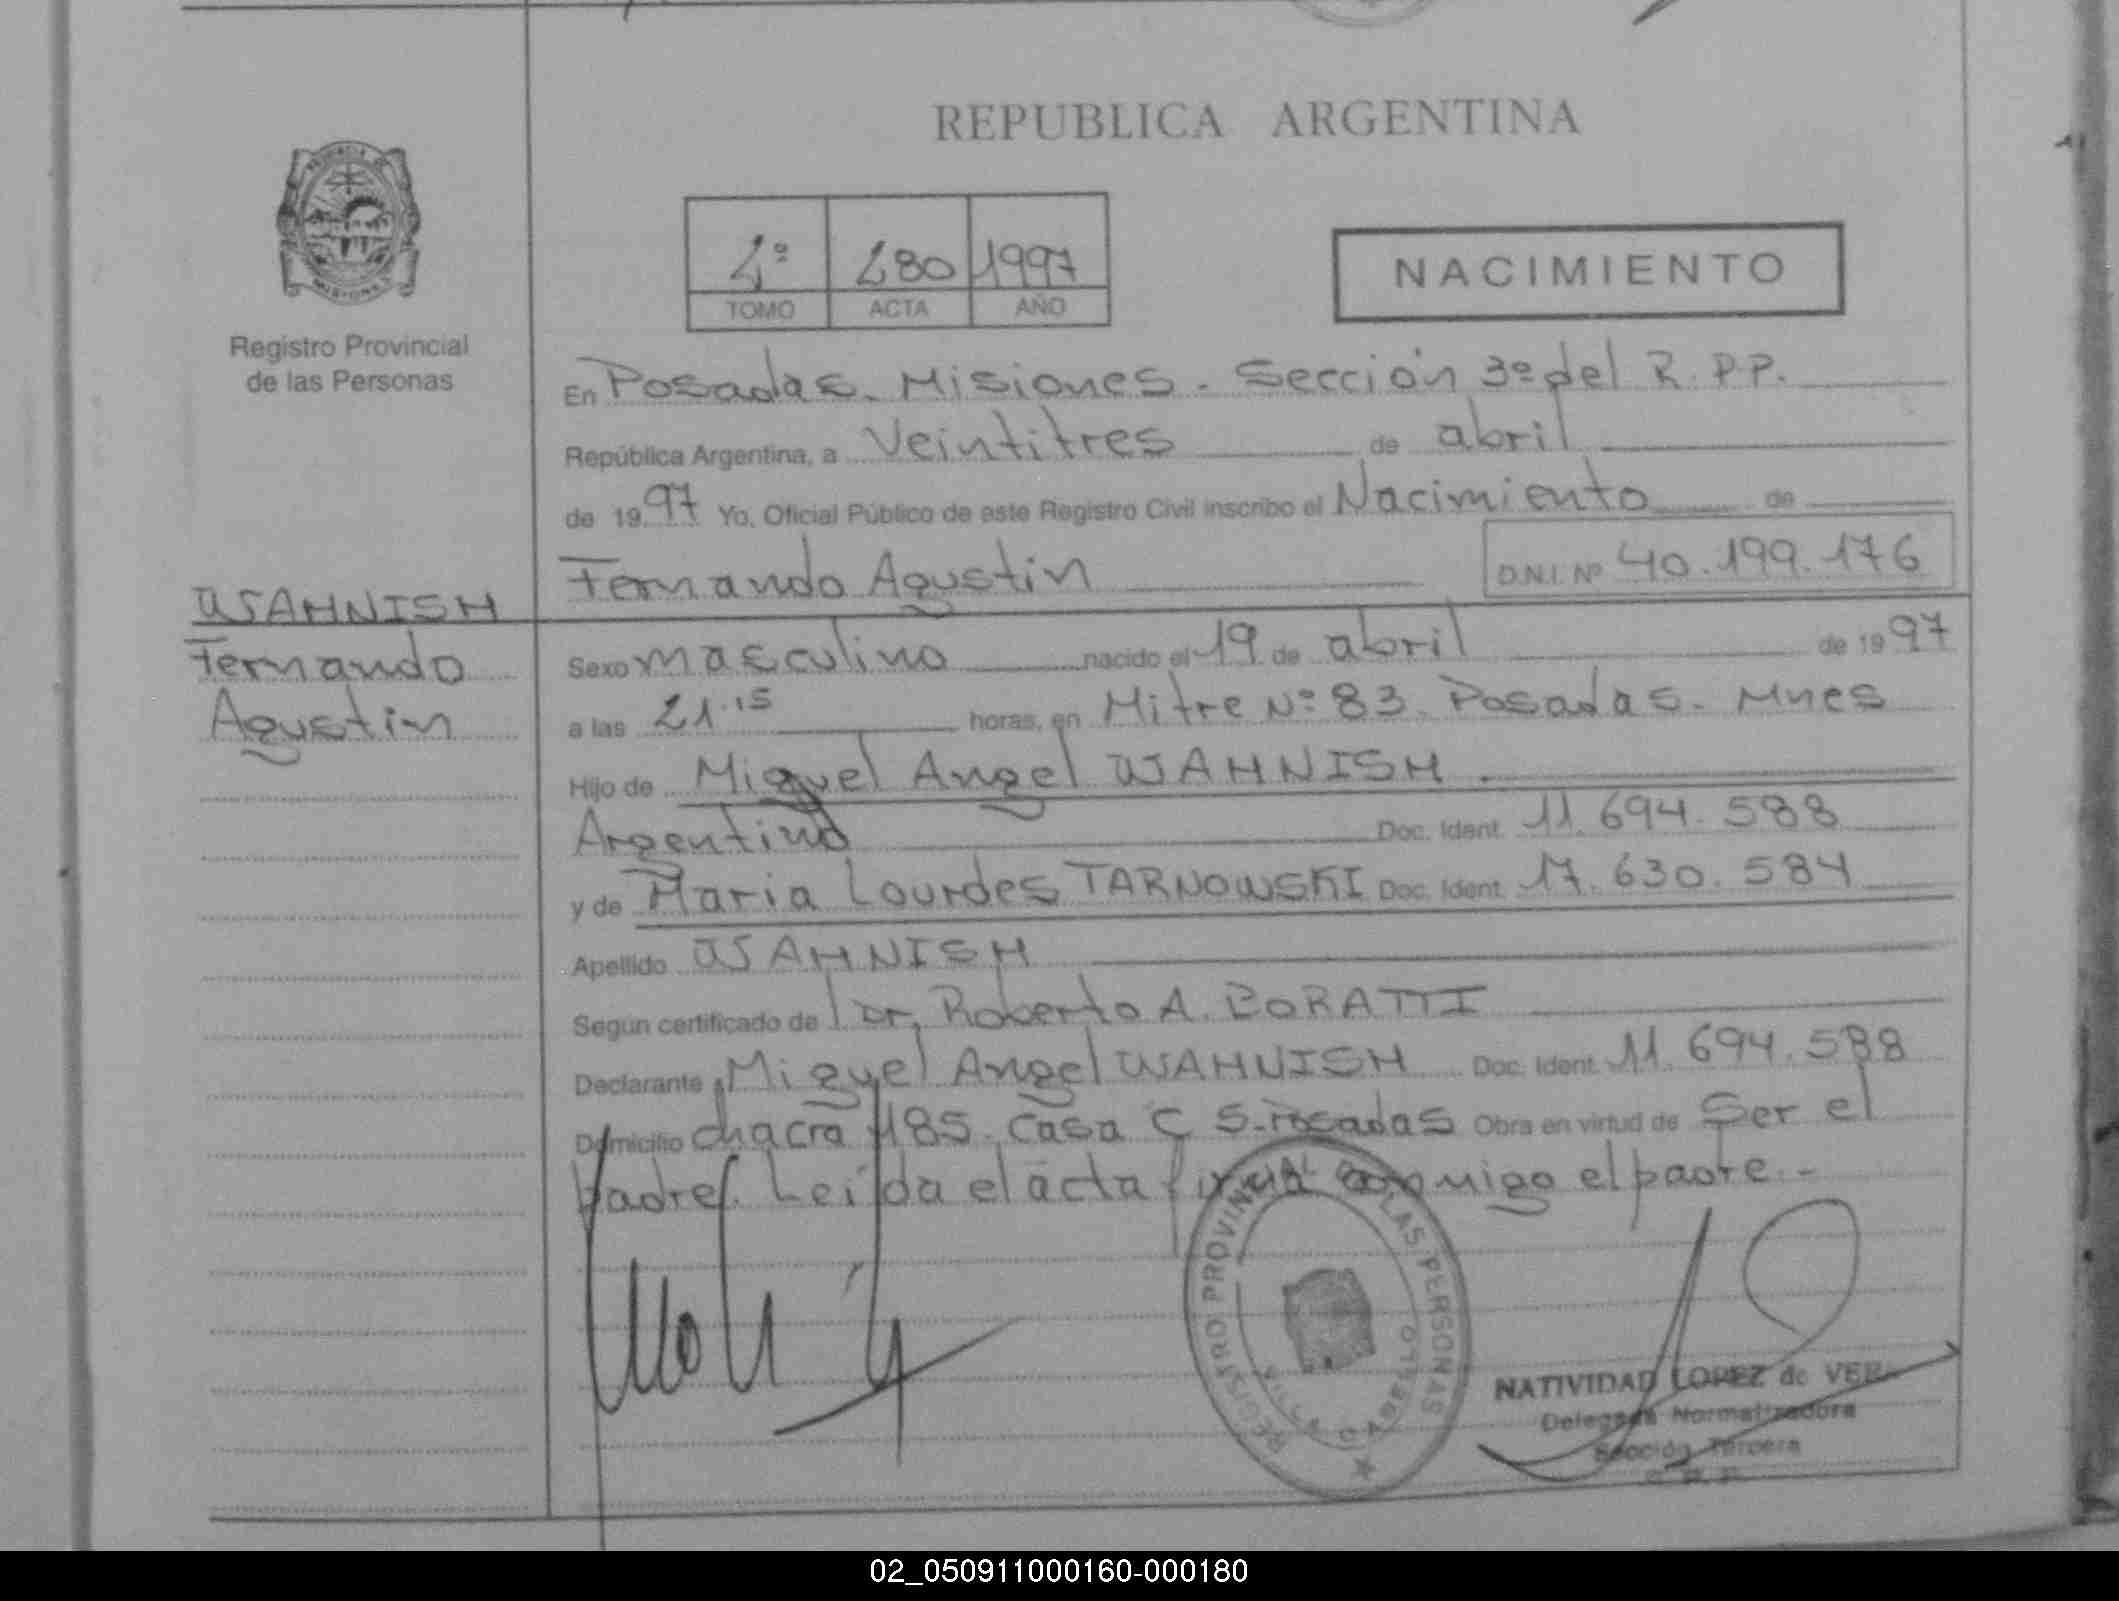 REPUBLICA ARGENTINA
2º 280 1997
TOMO ACTA AÑO
NACIMIENTO
MISIONES
Registro Provincial
de las Personas
En Posadas. Misiones. Sección 3º del R.P.P.
República Argentina, a Veintitres de abril
de 1997 Yo, Oficial Público de este Registro Civil inscribo el Nacimiento de
Fernando Agustin D.N.I. Nº 40.199.176
WAHNISH
Fernando
Agustin
Sexo masculino nacido el 19 de abril de 1997
a las 21.15 horas, en Mitre Nº 83. Posadas. Mnes
Hijo de Miguel Angel WAHNISH
Argentino Doc. Ident. 11.694.588
y de Maria Lourdes TARNOWSKI Doc. Ident. 17.630.584
Apellido WAHNISH
Segun certificado de Dr. Roberto A. BORATTI
Declarante Miguel Angel WAHNISH Doc. Ident. 11.694.588
Domicilio chacra 185. Casa C 5. Posadas Obra en virtud de Ser el
padre. Leida el acta firma conmigo el padre.-
REGISTRO PROVINCIAL DE LAS PERSONAS
NATIVIDAD LOPEZ de VERA
Delegada Normalizadora
Sección Tercera
02_050911000160-000180